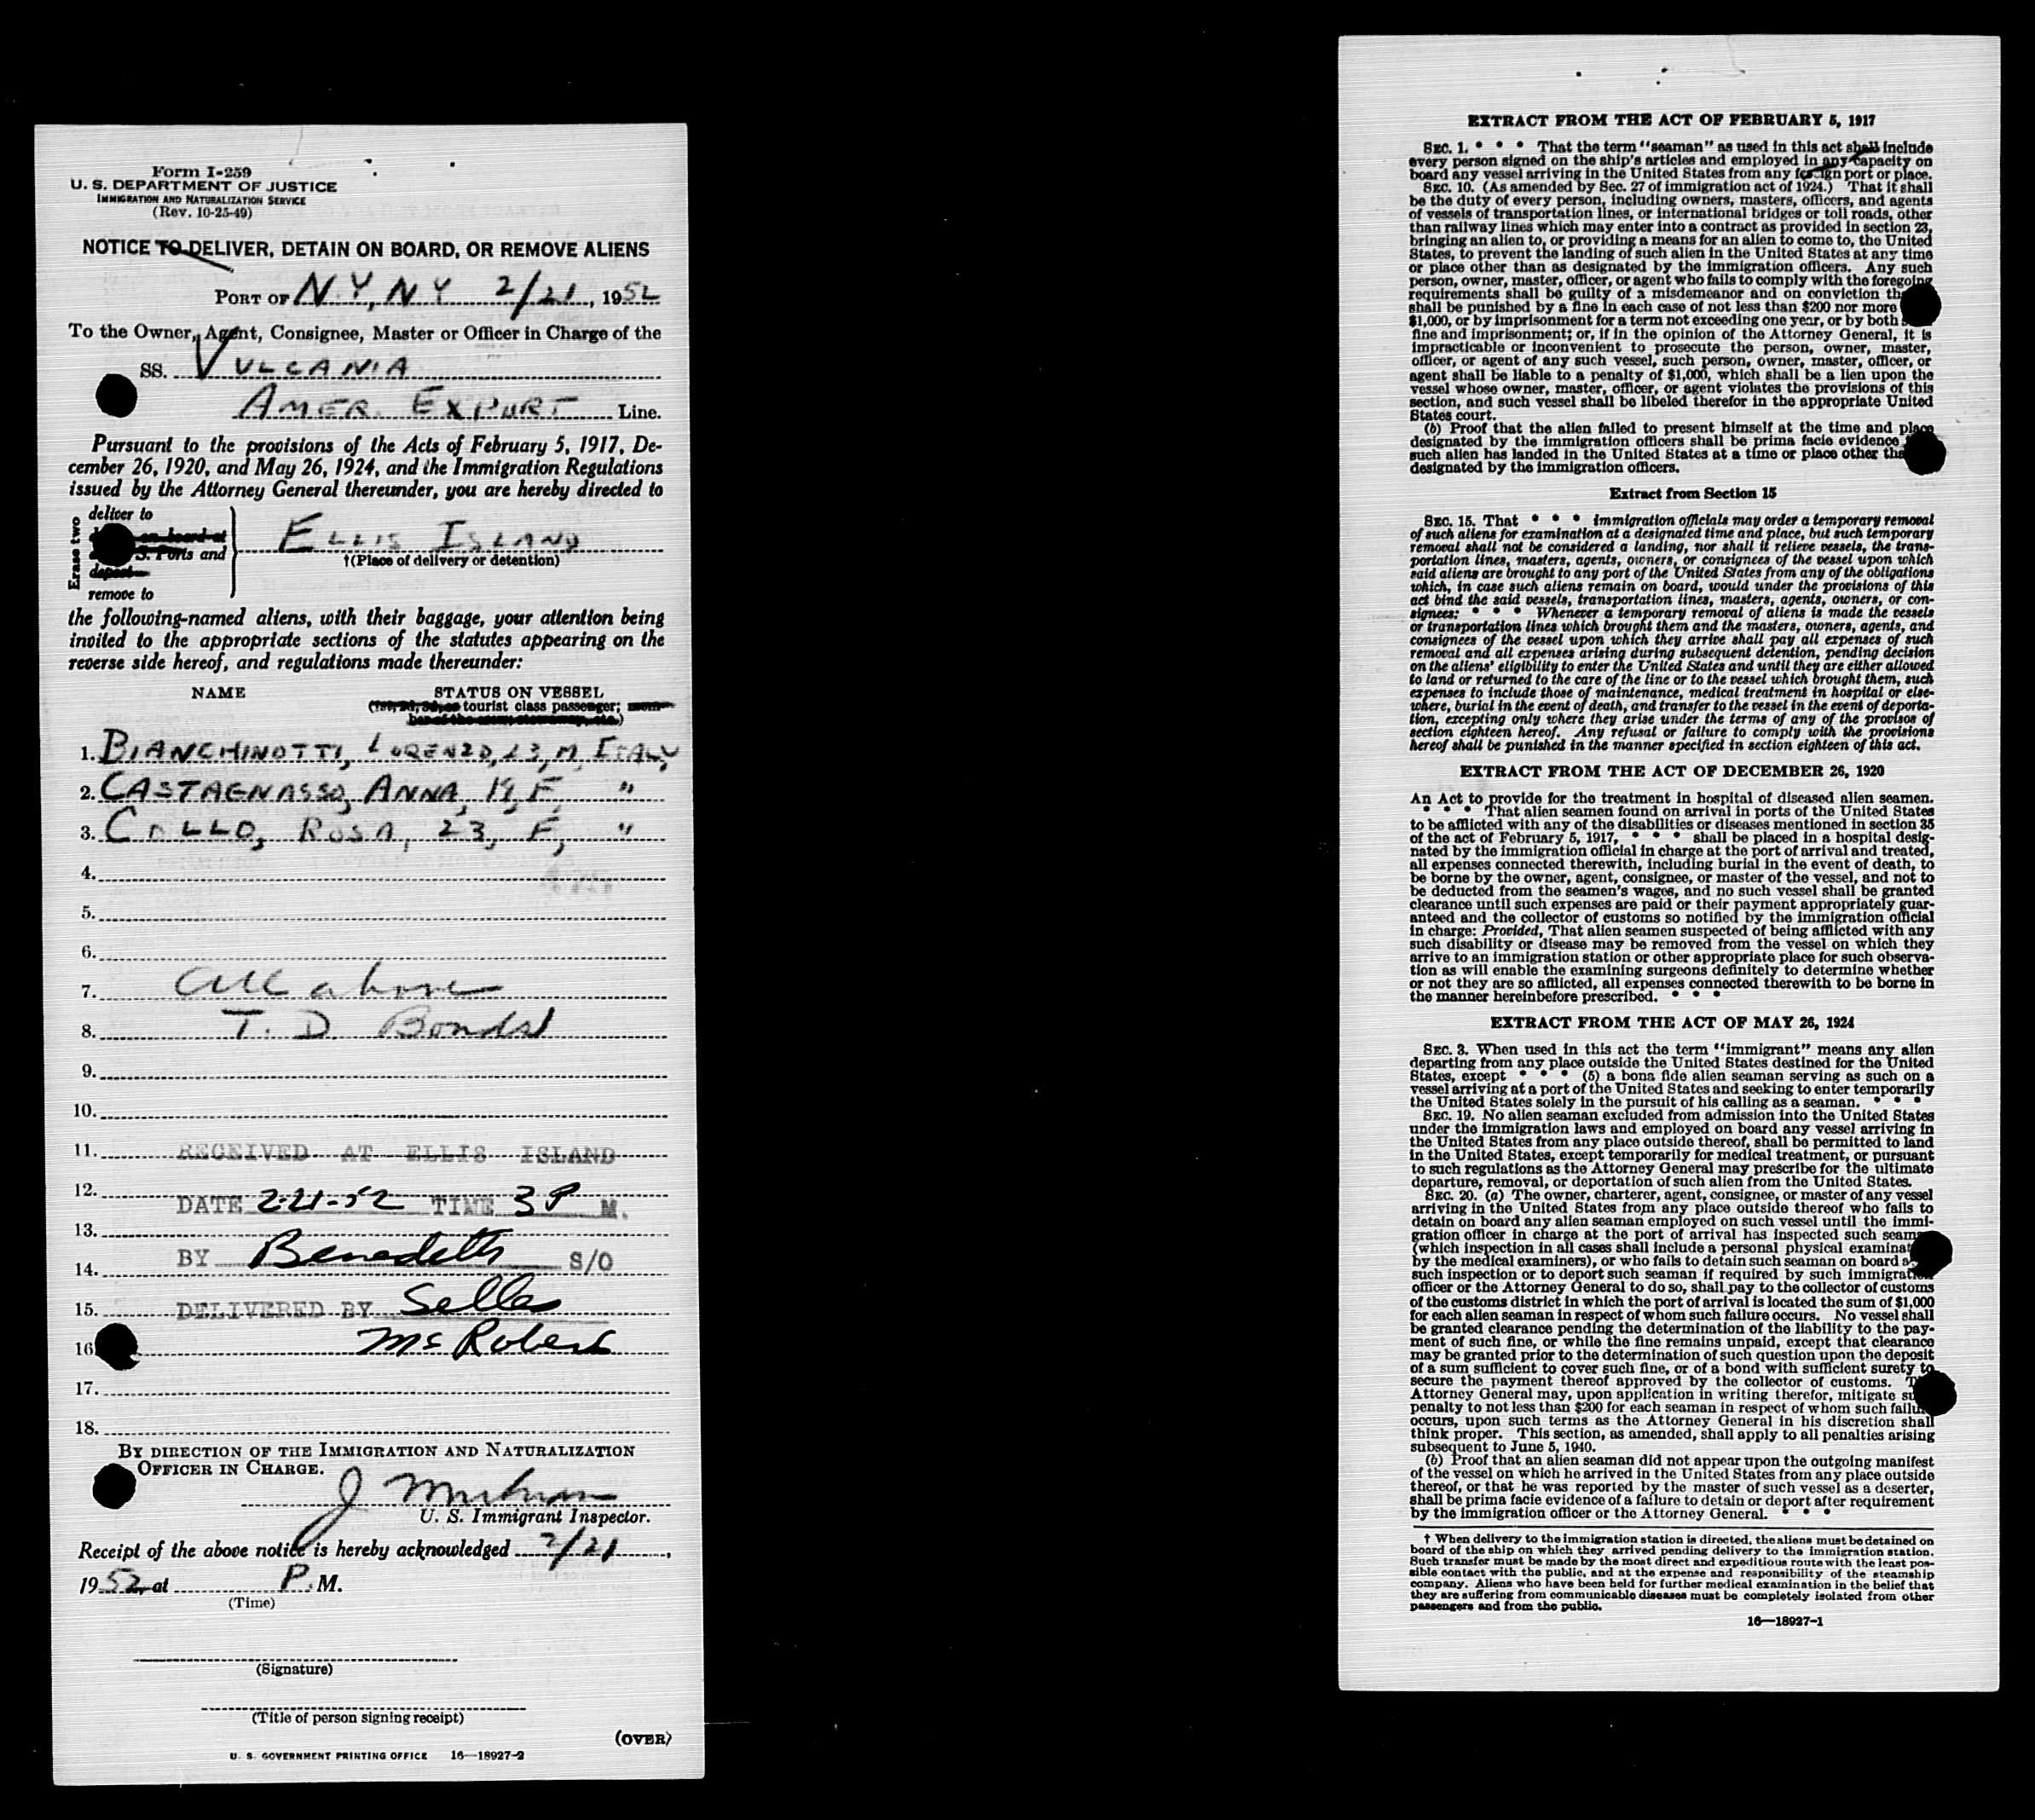 Form I-259
U. S. DEPARTMENT OF JUSTICE
IMMIGRATION AND NATURALIZATION SERVICE
(Rev. 10-25-49)
NOTICE TO DELIVER, DETAIN ON BOARD, OR REMOVE ALIENS
PORT OF N.Y., N Y 2/21, 1952
To the Owner, Agent, Consignee, Master or Officer in Charge of the
SS. VULCANIA
AMER. EXPORT Line.
Pursuant to the provisions of the Acts of February 5, 1917, De-
cember 26, 1920, and May 26, 1924, and the Immigration Regulations
issued by the Attorney General thereunder, you are hereby directed to
Erase two
deliver to
on board at
S. Ports and
deport
remove to
ELLIS ISLAND
†(Place of delivery or detention)
the following-named aliens, with their baggage, your attention being
invited to the appropriate sections of the statutes appearing on the
reverse side hereof, and regulations made thereunder:
NAME STATUS ON VESSEL
(1st, 2d, 3d, or tourist class passenger; mem-
ber of the crew, stowaway, etc.)
1. BIANCHINOTTI, LORENZO, 23, M, ITALY
2. CASTAGNASSO, ANNA, 19, F, "
3. COLLO, ROSA, 23, F, "
4.
5.
6.
7. All above
8. T. D. Bonds
9.
10.
11. RECEIVED AT ELLIS ISLAND
12. DATE 2-21-52 TIME 3 P M.
13.
BY Benedetti S/O
14.
15. DELIVERED BY Sella
16. McRobert
17.
18.
BY DIRECTION OF THE IMMIGRATION AND NATURALIZATION
OFFICER IN CHARGE.
J
U. S. Immigrant Inspector.
Receipt of the above notice is hereby acknowledged 2/21,
1952, at P.M.
(Time)
(Signature)
(Title of person signing receipt)
(OVER)
U. S. GOVERNMENT PRINTING OFFICE 16—18927-2
EXTRACT FROM THE ACT OF FEBRUARY 5, 1917
SEC. 1. * * * That the term "seaman" as used in this act shall include
every person signed on the ship's articles and employed in any capacity on
board any vessel arriving in the United States from any foreign port or place.
SEC. 10. (As amended by Sec. 27 of immigration act of 1924.) That it shall
be the duty of every person, including owners, masters, officers, and agents
of vessels of transportation lines, or international bridges or toll roads, other
than railway lines which may enter into a contract as provided in section 23,
bringing an alien to, or providing a means for an alien to come to, the United
States, to prevent the landing of such alien in the United States at any time
or place other than as designated by the immigration officers. Any such
person, owner, master, officer, or agent who fails to comply with the foregoing
requirements shall be guilty of a misdemeanor and on conviction th
shall be punished by a fine in each case of not less than $200 nor more
$1,000, or by imprisonment for a term not exceeding one year, or by both
fine and imprisonment; or, if in the opinion of the Attorney General, it is
impracticable or inconvenient to prosecute the person, owner, master,
officer, or agent of any such vessel, such person, owner, master, officer, or
agent shall be liable to a penalty of $1,000, which shall be a lien upon the
vessel whose owner, master, officer, or agent violates the provisions of this
section, and such vessel shall be libeled therefor in the appropriate United
States court.
(b) Proof that the alien failed to present himself at the time and place
designated by the immigration officers shall be prima facie evidence
such alien has landed in the United States at a time or place other tha
designated by the immigration officers.
Extract from Section 15
SEC. 15. That * * * immigration officials may order a temporary removal
of such aliens for examination at a designated time and place, but such temporary
removal shall not be considered a landing, nor shall it relieve vessels, the trans-
portation lines, masters, agents, owners, or consignees of the vessel upon which
said aliens are brought to any port of the United States from any of the obligations
which, in case such aliens remain on board, would under the provisions of this
act bind the said vessels, transportation lines, masters, agents, owners, or con-
signees: * * * Whenever a temporary removal of aliens is made the vessels
or transportation lines which brought them and the masters, owners, agents, and
consignees of the vessel upon which they arrive shall pay all expenses of such
removal and all expenses arising during subsequent detention, pending decision
on the aliens' eligibility to enter the United States and until they are either allowed
to land or returned to the care of the line or to the vessel which brought them, such
expenses to include those of maintenance, medical treatment in hospital or else-
where, burial in the event of death, and transfer to the vessel in the event of deporta-
tion, excepting only where they arise under the terms of any of the provisos of
section eighteen hereof. Any refusal or failure to comply with the provisions
hereof shall be punished in the manner specified in section eighteen of this act.
EXTRACT FROM THE ACT OF DECEMBER 26, 1920
An Act to provide for the treatment in hospital of diseased alien seamen.
* * * That alien seamen found on arrival in ports of the United States
to be afflicted with any of the disabilities or diseases mentioned in section 35
of the act of February 5, 1917, * * * shall be placed in a hospital desig-
nated by the immigration official in charge at the port of arrival and treated,
all expenses connected therewith, including burial in the event of death, to
be borne by the owner, agent, consignee, or master of the vessel, and not to
be deducted from the seamen's wages, and no such vessel shall be granted
clearance until such expenses are paid or their payment appropriately guar-
anteed and the collector of customs so notified by the immigration official
in charge: Provided, That alien seamen suspected of being afflicted with any
such disability or disease may be removed from the vessel on which they
arrive to an immigration station or other appropriate place for such observa-
tion as will enable the examining surgeons definitely to determine whether
or not they are so afflicted, all expenses connected therewith to be borne in
the manner hereinbefore prescribed. * * *
EXTRACT FROM THE ACT OF MAY 26, 1924
SEC. 3. When used in this act the term "immigrant" means any alien
departing from any place outside the United States destined for the United
States, except * * * (5) a bona fide alien seaman serving as such on a
vessel arriving at a port of the United States and seeking to enter temporarily
the United States solely in the pursuit of his calling as a seaman. * * *
SEC. 19. No alien seaman excluded from admission into the United States
under the immigration laws and employed on board any vessel arriving in
the United States from any place outside thereof, shall be permitted to land
in the United States, except temporarily for medical treatment, or pursuant
to such regulations as the Attorney General may prescribe for the ultimate
departure, removal, or deportation of such alien from the United States.
SEC. 20. (a) The owner, charterer, agent, consignee, or master of any vessel
arriving in the United States from any place outside thereof who fails to
detain on board any alien seaman employed on such vessel until the immi-
gration officer in charge at the port of arrival has inspected such seam
(which inspection in all cases shall include a personal physical examinat
by the medical examiners), or who fails to detain such seaman on board a
such inspection or to deport such seaman if required by such immigration
officer or the Attorney General to do so, shall pay to the collector of customs
of the customs district in which the port of arrival is located the sum of $1,000
for each alien seaman in respect of whom such failure occurs. No vessel shall
be granted clearance pending the determination of the liability to the pay-
ment of such fine, or while the fine remains unpaid, except that clearance
may be granted prior to the determination of such question upon the deposit
of a sum sufficient to cover such fine, or of a bond with sufficient surety to
secure the payment thereof approved by the collector of customs. T
Attorney General may, upon application in writing therefor, mitigate su
penalty to not less than $200 for each seaman in respect of whom such failure
occurs, upon such terms as the Attorney General in his discretion shall
think proper. This section, as amended, shall apply to all penalties arising
subsequent to June 5, 1940.
(b) Proof that an alien seaman did not appear upon the outgoing manifest
of the vessel on which he arrived in the United States from any place outside
thereof, or that he was reported by the master of such vessel as a deserter,
shall be prima facie evidence of a failure to detain or deport after requirement
by the immigration officer or the Attorney General. * * *
† When delivery to the immigration station is directed, the aliens must be detained on
board of the ship on which they arrived pending delivery to the immigration station.
Such transfer must be made by the most direct and expeditious route with the least pos-
sible contact with the public, and at the expense and responsibility of the steamship
company. Aliens who have been held for further medical examination in the belief that
they are suffering from communicable diseases must be completely isolated from other
passengers and from the public.
16—18927-1